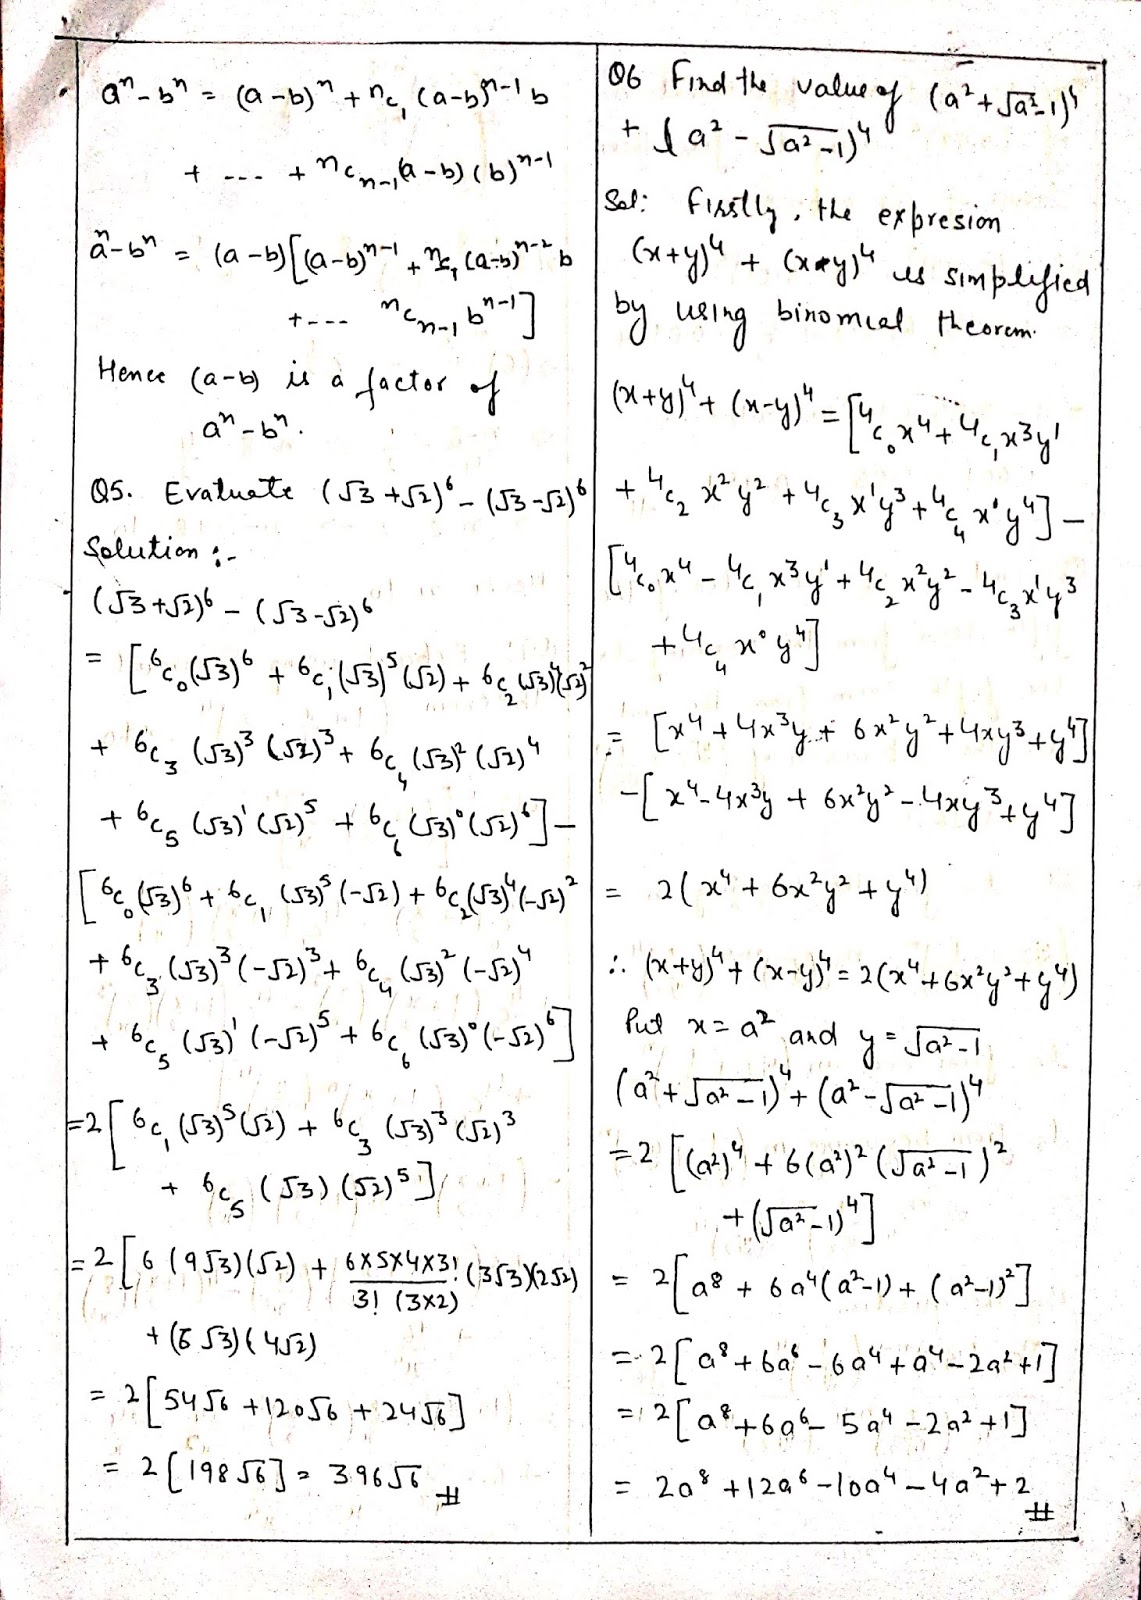 aⁿ - bⁿ = (a-b)ⁿ + ⁿC₁ (a-b)ⁿ⁻¹ b
+ --- + ⁿCₙ₋₁(a-b)(b)ⁿ⁻¹
aⁿ-bⁿ = (a-b)[(a-b)ⁿ⁻¹ + ⁿC₁ (a-b)ⁿ⁻² b
+--- ⁿCₙ₋₁ bⁿ⁻¹]
Hence (a-b) is a factor of
aⁿ-bⁿ.
Q5. Evaluate (√3+√2)⁶ - (√3-√2)⁶
Solution :-
(√3+√2)⁶ - (√3-√2)⁶
= [⁶C₀(√3)⁶ + ⁶C₁(√3)⁵(√2) + ⁶C₂(√3)⁴(√2)²
+ ⁶C₃ (√3)³ (√2)³ + ⁶C₄ (√3)² (√2)⁴
+ ⁶C₅ (√3)¹ (√2)⁵ + ⁶C₆ (√3)⁰(√2)⁶] -
[⁶C₀(√3)⁶ + ⁶C₁ (√3)⁵(-√2) + ⁶C₂(√3)⁴(-√2)²
+ ⁶C₃ (√3)³ (-√2)³ + ⁶C₄ (√3)² (-√2)⁴
+ ⁶C₅ (√3)¹ (-√2)⁵ + ⁶C₆ (√3)⁰(-√2)⁶]
=2[⁶C₁(√3)⁵(√2) + ⁶C₃ (√3)³(√2)³
+ ⁶C₅ (√3)(√2)⁵]
=2[6(9√3)(√2) + 6×5×4×3!/3! (3×2) (3√3)(2√2)
+(6√3)(4√2)
= 2[54√6 +120√6 + 24√6]
= 2[198√6] = 396√6 #
Q6 Find the value of (a²+√a²-1)⁴
+ (a² - √a²-1)⁴
Sol: Firstly, the expresion
(x+y)⁴ + (x-y)⁴ is simplified
by using binomial theorem.
(x+y)⁴+(x-y)⁴ = [⁴C₀x⁴ + ⁴C₁x³y¹
+ ⁴C₂ x²y² + ⁴C₃x¹y³ + ⁴C₄x⁰y⁴] -
[⁴C₀x⁴ - ⁴C₁x³y¹ + ⁴C₂x²y² - ⁴C₃x¹y³
+ ⁴C₄ x⁰y⁴]
= [x⁴ + 4x³y + 6x²y² + 4xy³ + y⁴]
-[x⁴-4x³y + 6x²y² - 4xy³ + y⁴]
= 2(x⁴ + 6x²y² + y⁴)
∴ (x+y)⁴+(x-y)⁴ = 2(x⁴+6x²y²+y⁴)
Put x = a² and y = √a²-1
(a²+√a²-1)⁴ + (a²-√a²-1)⁴
=2[(a²)⁴ + 6(a²)²(√a²-1)²
+(√a²-1)⁴]
= 2[a⁸ + 6a⁴(a²-1) + (a²-1)²]
= 2[a⁸+6a⁶-6a⁴+a⁴-2a²+1]
= 2[a⁸+6a⁶-5a⁴-2a²+1]
= 2a⁸+12a⁶-10a⁴-4a²+2 #